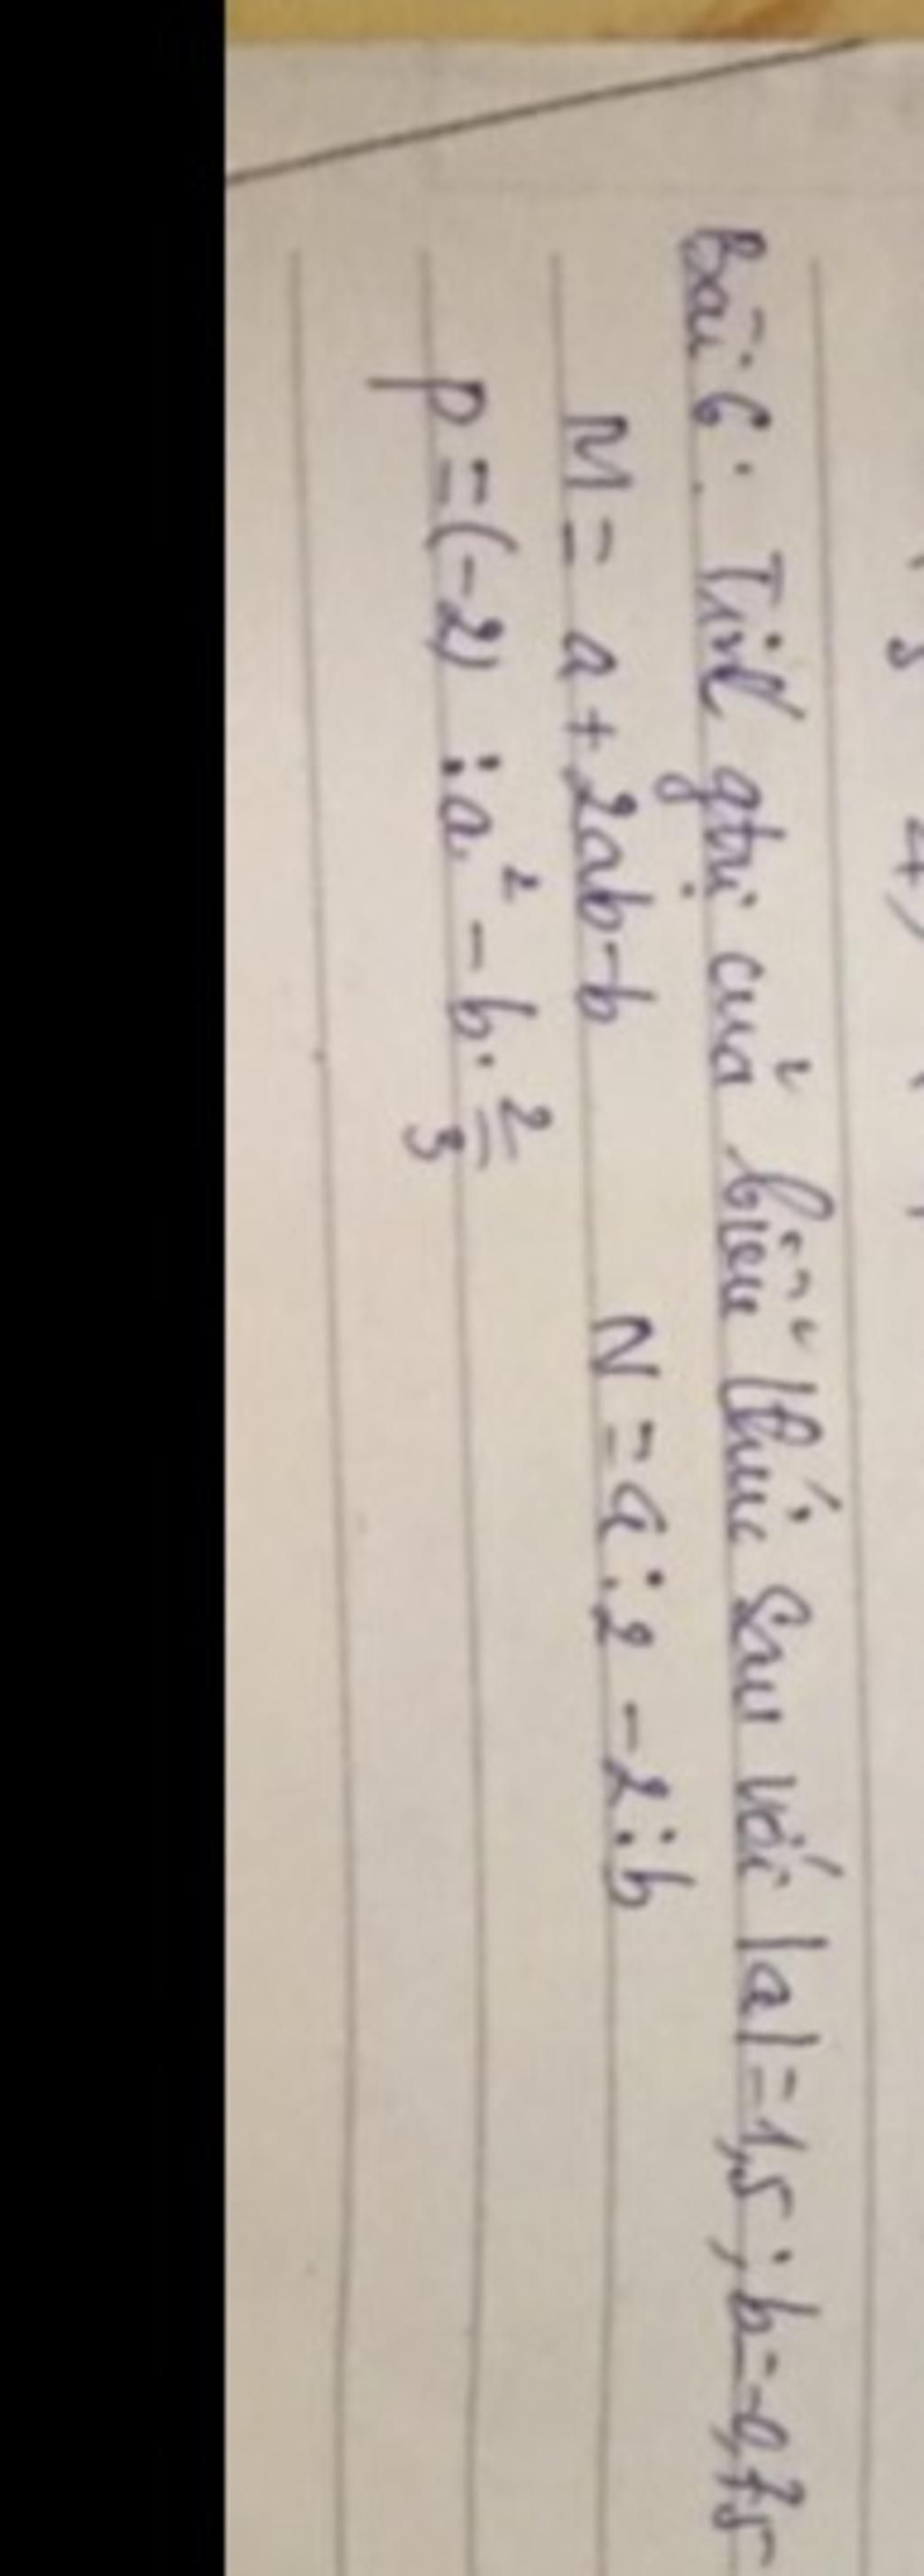 Bài 6: Tính gtrị của biểu thức sau với |a|=1,5; b=-0,75
M = a + 2ab - b N = a : 2 - 2 : b
P = (-2) : a² - b . 2/3